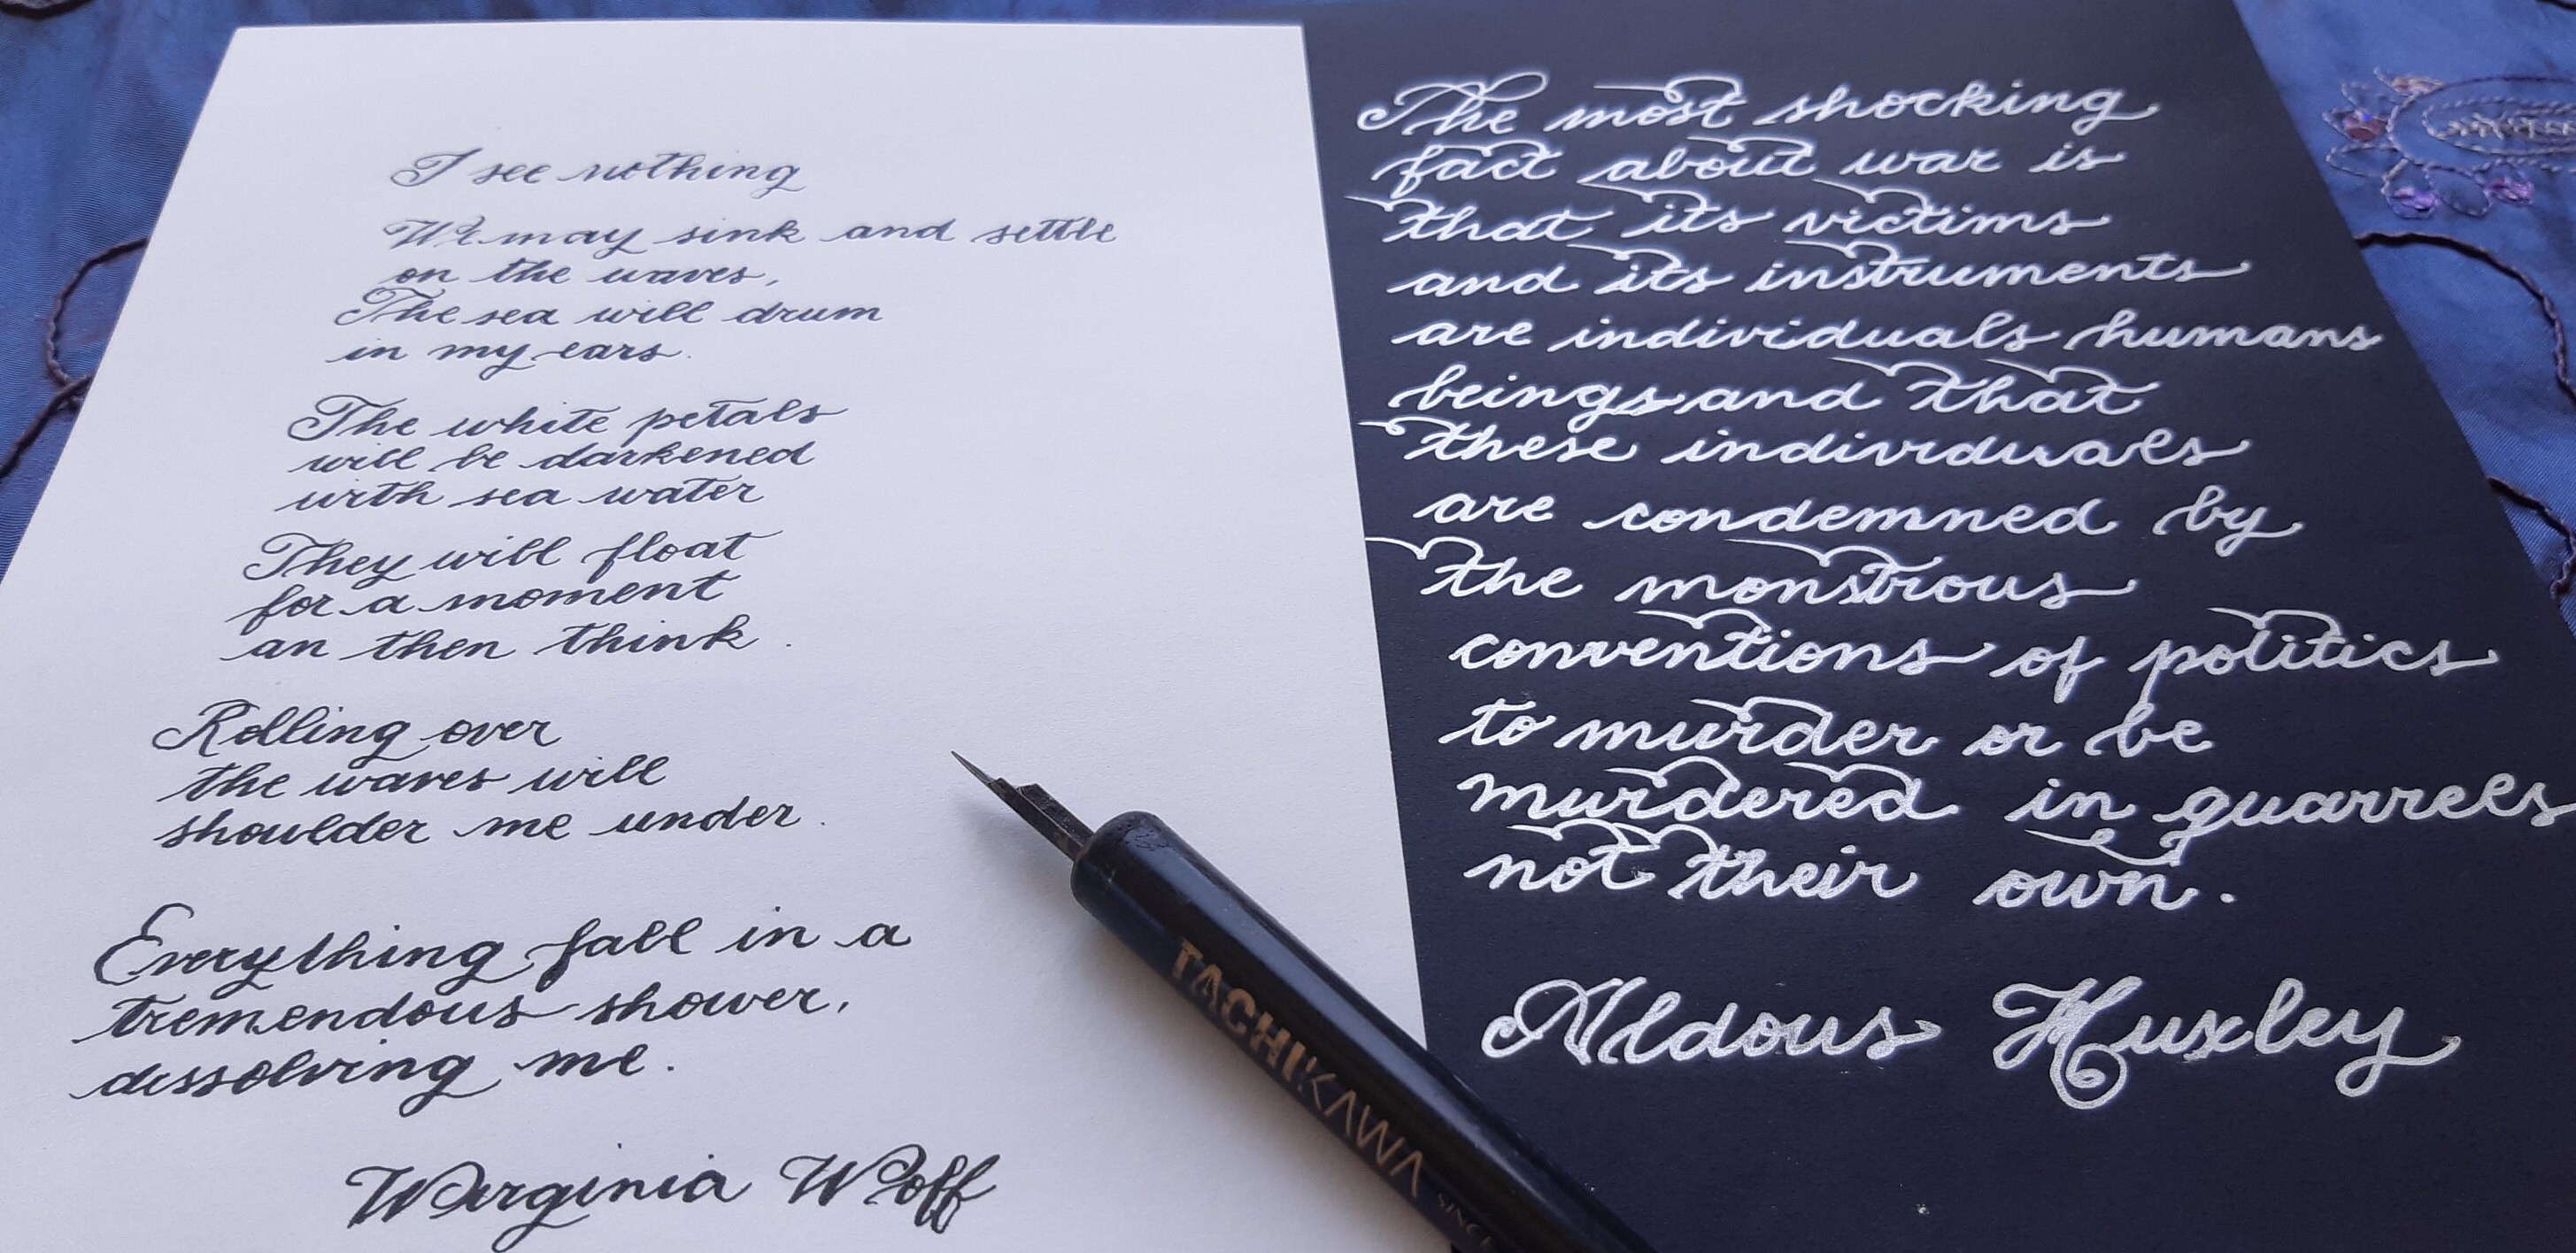 I see nothing
We may sink and settle
on the waves,
The sea will drum
in my ears.
The white petals
will be darkened
with sea water
They will float
for a moment
an then think.
Rolling over
the waves will
shoulder me under.
Everything fall in a
tremendous shower,
dissolving me.
Wirginia Wolff
The most shocking
fact about war is
that its victims
and its instruments
are individuals humans
beings and that
these individuals
are condemned by
the monstrous
conventions of politics
to murder or be
murdered in quarrels
not their own.
Aldous Huxley
TACHIKAWA